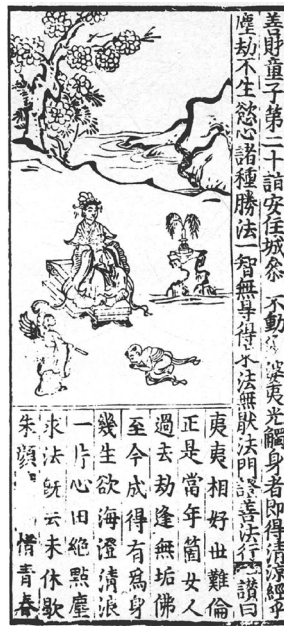 善財童子第二十詣安住城叅不動婆夷光觸身者即得清凉經乎
塵劫不生慾心諸種勝法一智無等得求法無猒法門證善法行讃曰
夷夷相好世難倫
正是當年箇女人
過去劫逢無垢佛
至今成得有為身
幾生欲海澄清浪
一片心田絕點塵
求法旣云未休歇
朱顔惜青春